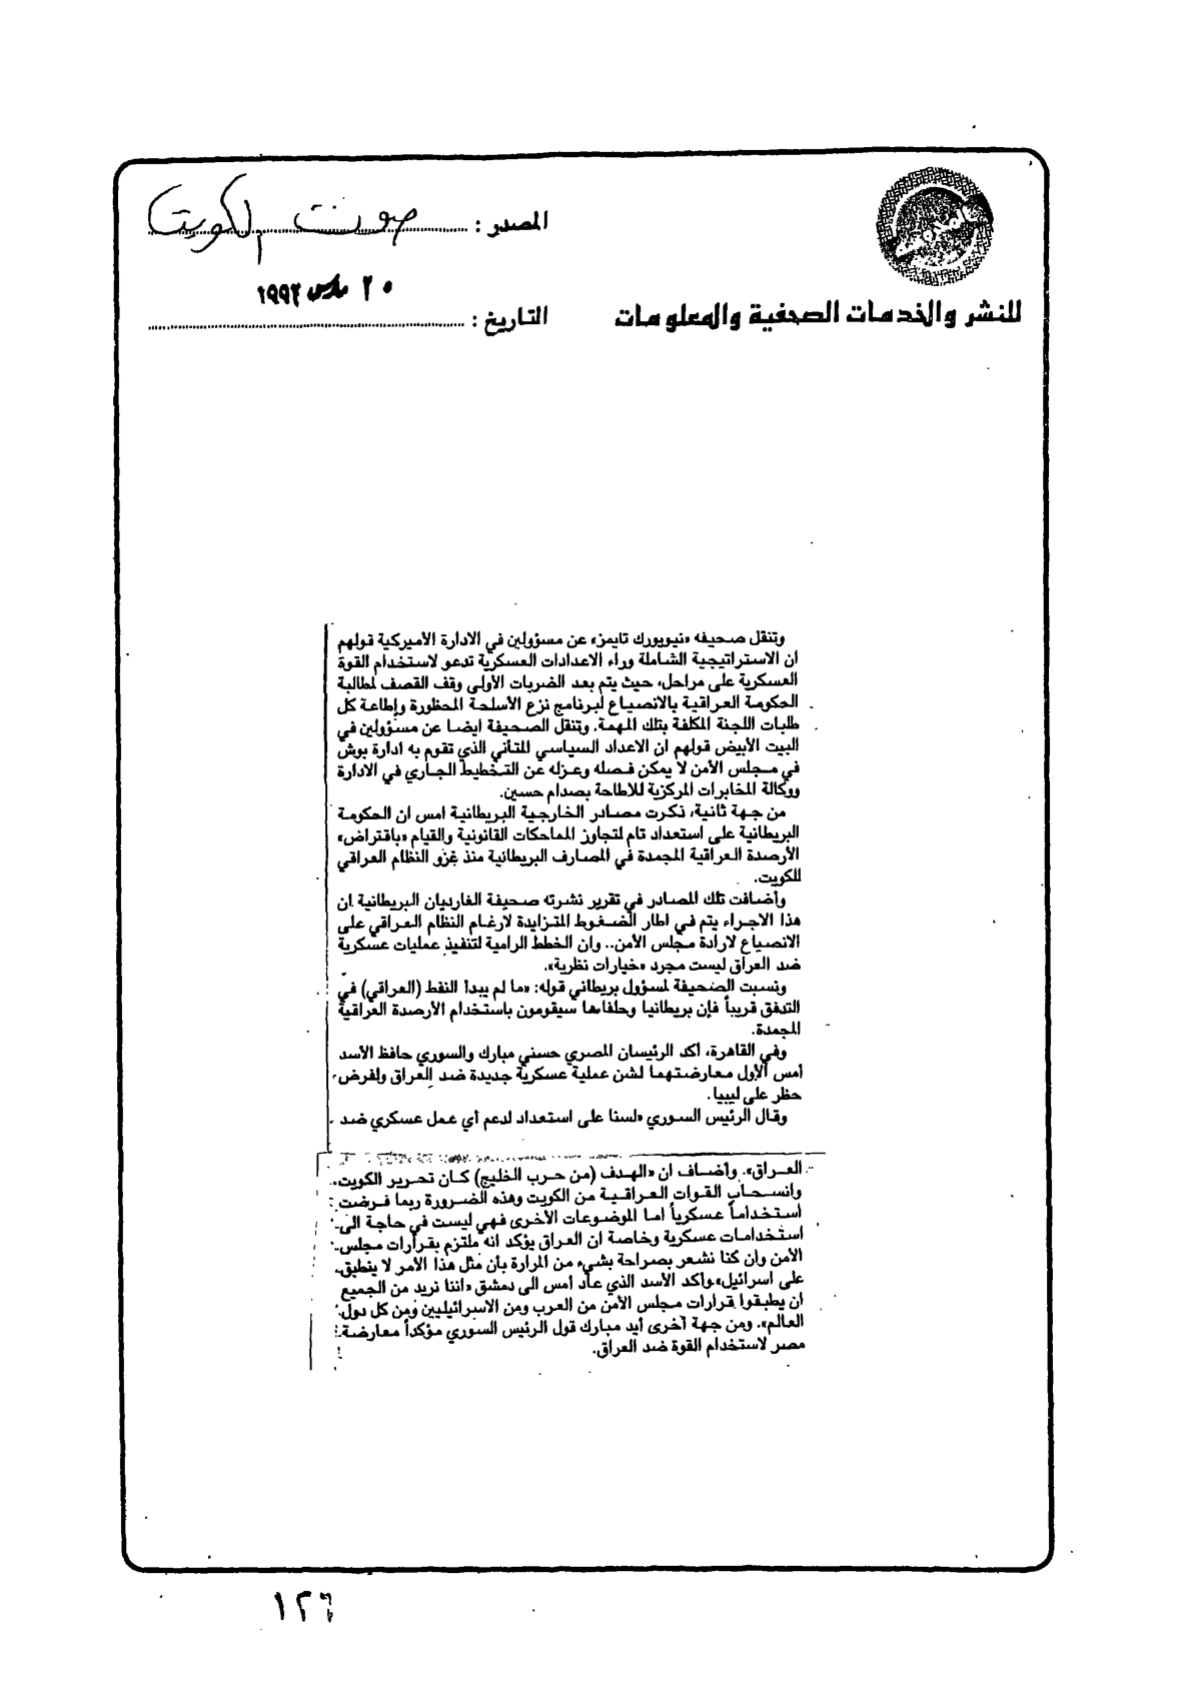 المصدر : صوت الكويت
٢٠ مارس ١٩٩٢
التاريخ :
للنشر والخدمات الصحفية والمعلومات
وتنقل صحيفه «نيويورك تايمز» عن مسؤولين في الادارة الأميركية قولهم
ان الاستراتيجية الشاملة وراء الاعدادات العسكرية تدعو لاستخدام القوة
العسكرية على مراحل، حيث يتم بعد الضربات الأولى وقف القصف لمطالبة
الحكومة العراقية بالانصياع لبرنامج نزع الأسلحة المحظورة وإطاعة كل
طلبات اللجنة المكلفة بتلك المهمة. وتنقل الصحيفة ايضا عن مسؤولين في
البيت الأبيض قولهم ان الاعداد السياسي المتأني الذي تقوم به ادارة بوش
في مجلس الأمن لا يمكن فصله وعزله عن التخطيط الجاري في الادارة
ووكالة المخابرات المركزية للاطاحة بصدام حسين.
من جهة ثانية، ذكرت مصادر الخارجية البريطانية امس ان الحكومة
البريطانية على استعداد تام لتجاوز المماحكات القانونية والقيام «باقتراض»
الأرصدة العراقية المجمدة في المصارف البريطانية منذ غزو النظام العراقي
للكويت.
وأضافت تلك المصادر في تقرير نشرته صحيفة الغارديان البريطانية ان
هذا الاجراء يتم في اطار الضغوط المتزايدة لارغام النظام العراقي على
الانصياع لارادة مجلس الأمن.. وان الخطط الرامية لتنفيذ عمليات عسكرية
ضد العراق ليست مجرد «خيارات نظرية».
ونسبت الصحيفة لمسؤول بريطاني قوله: «ما لم يبدأ النفط (العراقي) في
التدفق قريباً فإن بريطانيا وحلفاءها سيقومون باستخدام الأرصدة العراقية
المجمدة.
وفي القاهرة، أكد الرئيسان المصري حسني مبارك والسوري حافظ الأسد
أمس الأول معارضتهما لشن عملية عسكرية جديدة ضد العراق ولفرض
حظر على ليبيا.
وقال الرئيس السوري «لسنا على استعداد لدعم أي عمل عسكري ضد
العراق». وأضاف ان «الهدف (من حرب الخليج) كان تحرير الكويت
وانسحاب القوات العراقية من الكويت وهذه الضرورة ربما فرضت
استخداماً عسكرياً اما الموضوعات الأخرى فهي ليست في حاجة الى
استخدامات عسكرية وخاصة ان العراق يؤكد انه ملتزم بقرارات مجلس
الأمن وان كنا نشعر بصراحة بشيء من المرارة بأن مثل هذا الأمر لا ينطبق
على اسرائيل» وأكد الأسد الذي عاد أمس الى دمشق «اننا نريد من الجميع
ان يطبقوا قرارات مجلس الأمن من العرب ومن الاسرائيليين ومن كل دول
العالم». ومن جهة أخرى أيد مبارك قول الرئيس السوري مؤكداً معارضة
مصر لاستخدام القوة ضد العراق.
١٢٦